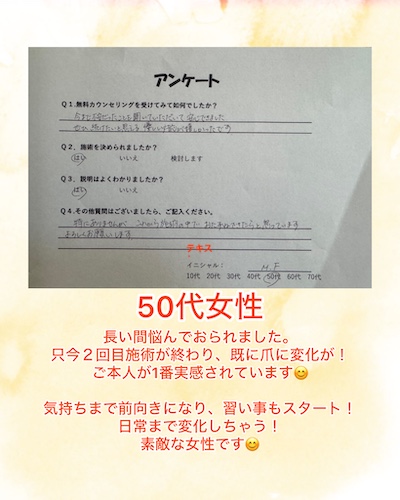 アンケート
Q１.無料カウンセリングを受けてみて如何でしたか？
Q２、施術を決められましたか？
はい いいえ 検討します
Q３、説明はよくわかりましたか？
はい いいえ
Q４.その他質問はございましたら、ご記入ください。
よろしくお願いします
テキス
イニシャル： M.F
10代 20代 30代 40代 50代 60代 70代
50代女性
長い間悩んでおられました。
只今２回目施術が終わり、既に爪に変化が！
ご本人が1番実感されています😊
気持ちまで前向きになり、習い事もスタート！
日常まで変化しちゃう！
素敵な女性です😊